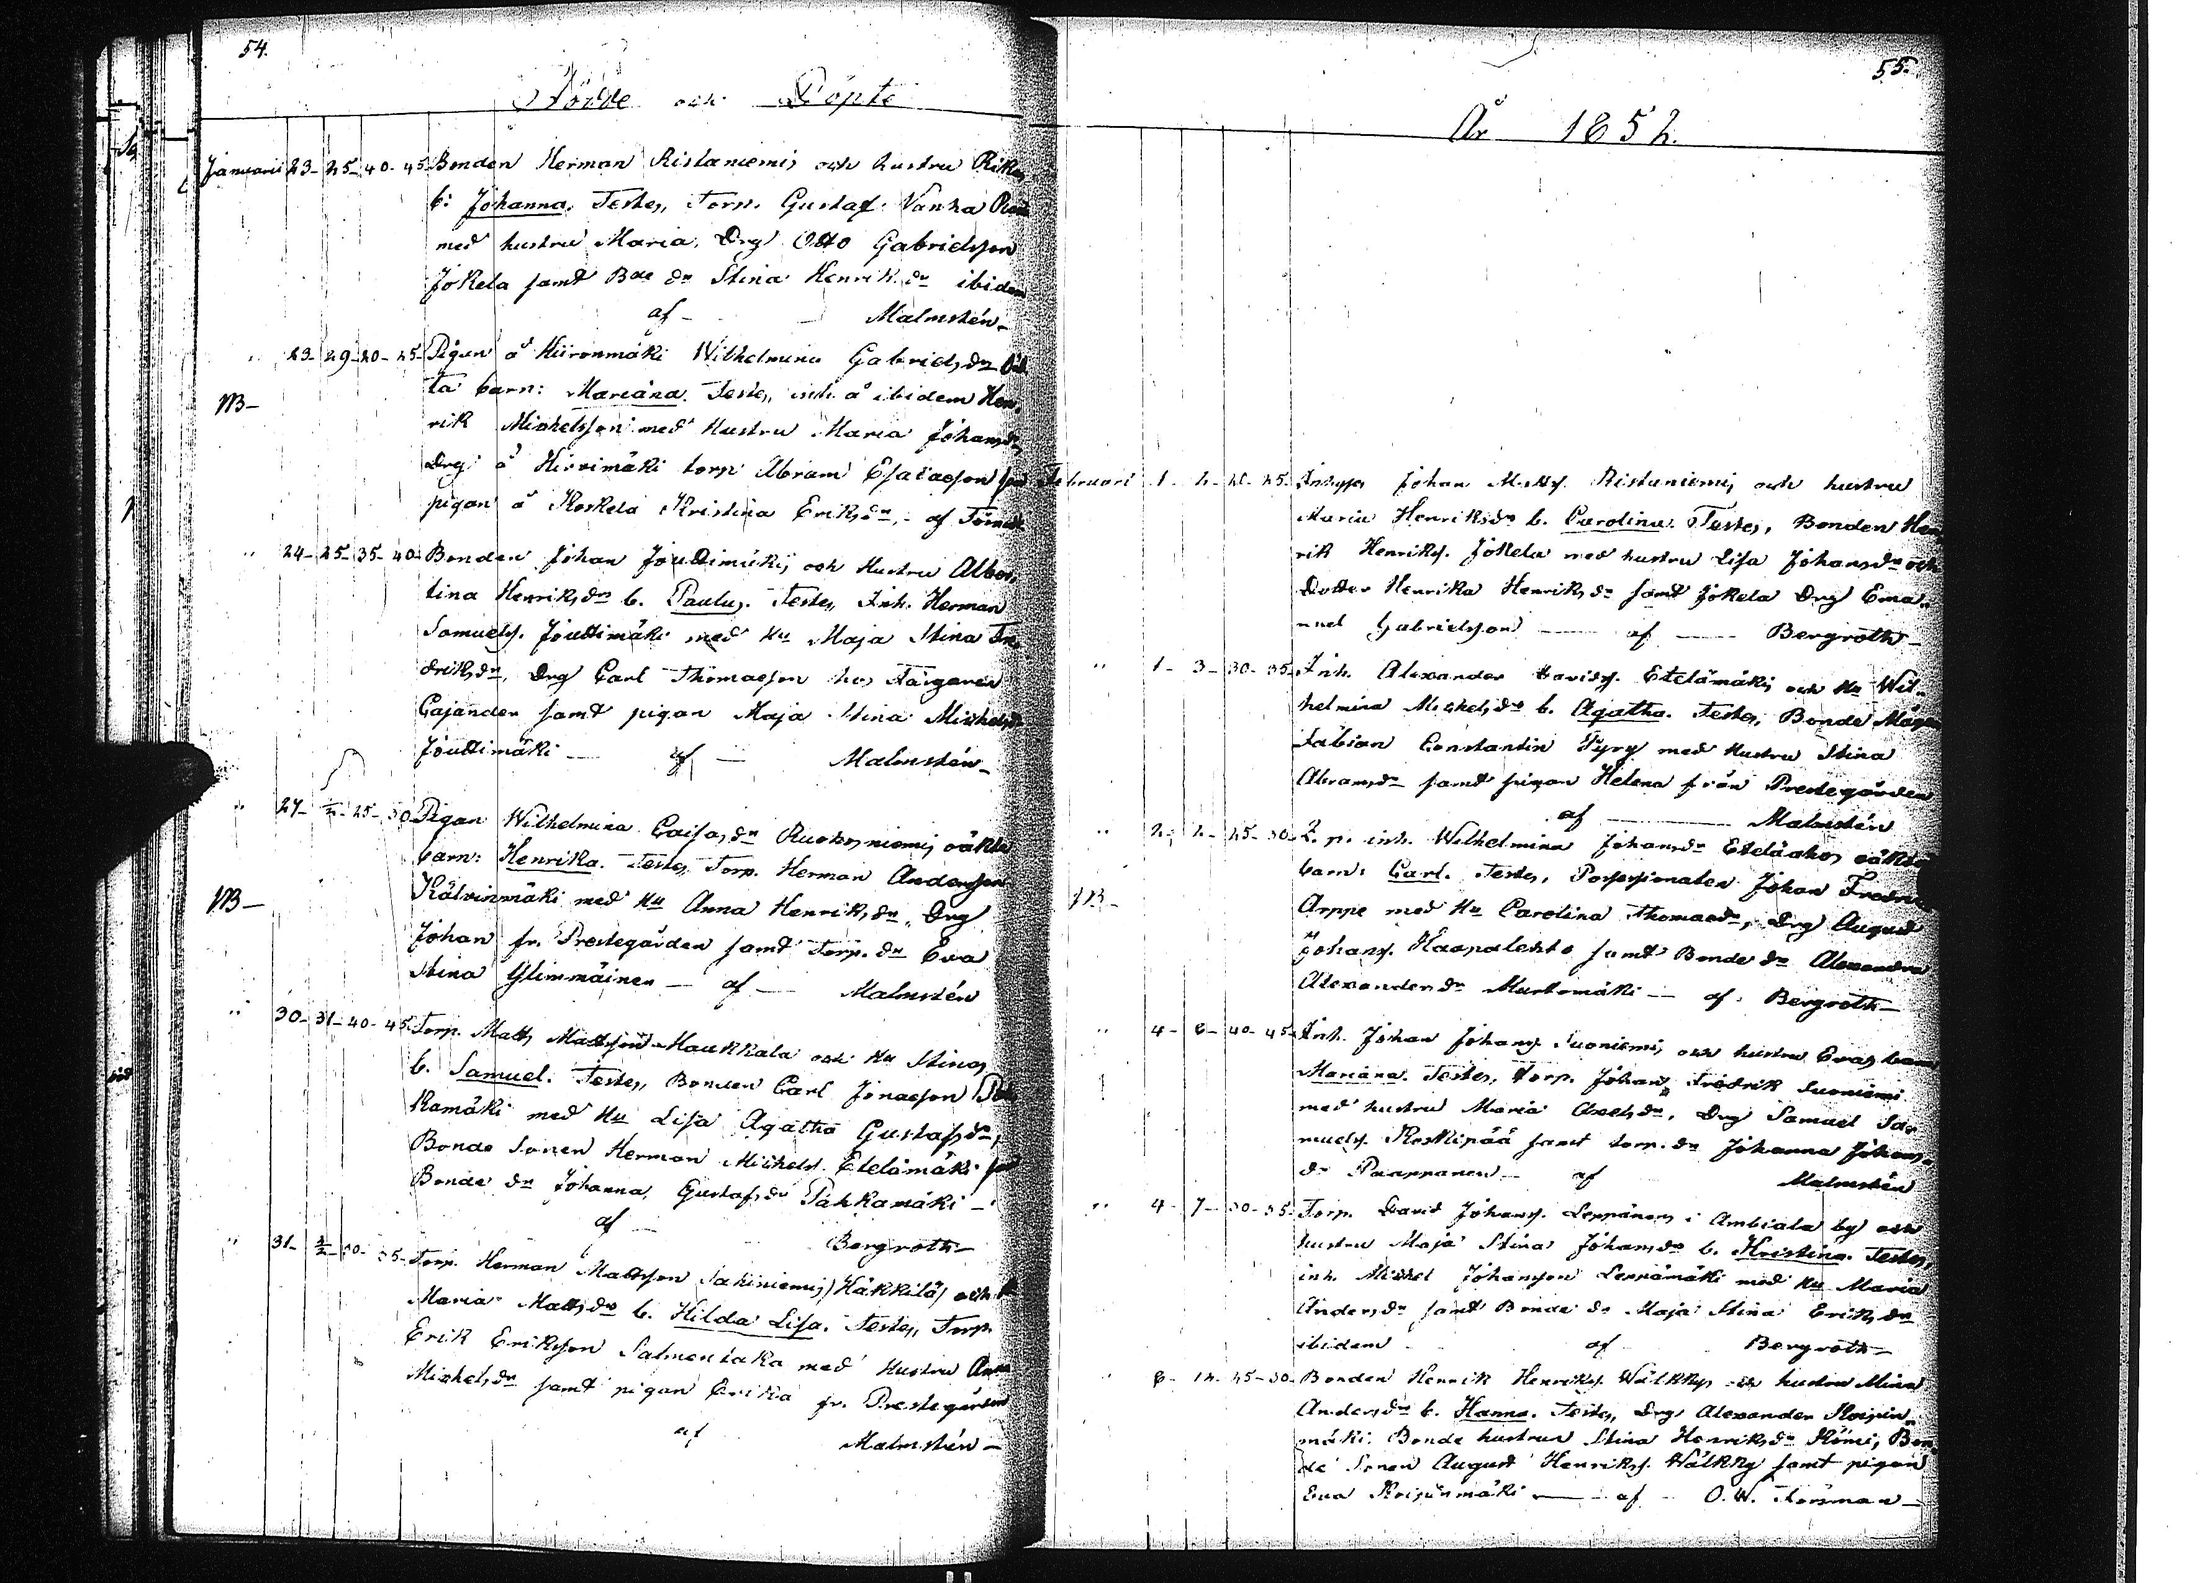 54.
Födde och Döpte
Januarii 23- 25- 40- 45. Bonden Herman Ristaniemi och hustru
b: Johanna. Testes, Torp. Gustaf Vanha
med hustru Maria, Drg Otto Gabrielsson
Jokela samt Bde dr Stina Henriksdr ibidem
af - Malmstén -
" 23- 29- 20- 25- Pigan å Hiironmäki Wilhelmina Gabrielsdr
ta barn: Mariana. Testes, inh. å ibidem Hen-
NB-
rik Michelsson med Hustru Maria Johansdr,
Drg å Hirvimäki torp Abram Esaiasson
pigan å Koskela Kristina Eriksdr, - af
" 24- 25- 35- 40. Bonden Johan Jouttimäki och Hustru Alber-
tina Henriksdr b. Paulus. Testes, Inh. Herman
Samuels. Jouttimäki med Hu Maja Stina
driksdr, Drg Carl Thomasson hos Färgaren
Cajander samt pigan Maja Stina Michelsdr
Jouttimäki - af - Malmstén -
" 27- 25- 30 Pigan Wilhelmina Caisasdr Ruokoniemi oäkta
barn: Henrika. Testes, Torp. Herman Andersson
NB-
Kälvinmäki med Hu Anna Henriksdr, Drg
Johan fr. Prestegården samt Torp. dr Eva
Stina Glimmäinen - af - Malmstén
" 30- 31- 40- 45. Torp. Matts Mattsson Haukkala och Hu Stinas
b. Samuel. Testes, Bonden Carl Jonasson
kamäki med Hu Lisa Agatha Gustafsdr,
Bonde Sonen Herman Michels. Etelämäki
Bonde dr Johanna Gustafsdr Pahkamäki -
af - Bergroth -
" 31- 30- 35- Torp. Herman Mattsson Sakiniemi (Häkkilä) och
Maria Mattsdr b. Hilda Lisa. Testes, Torp.
Erik Eriksson Salmentaka med Hustru
Michelsdr samt pigan Erika fr. Prestegården
af Malmstén -
55.
År 1852.
Februari 1- 2- 20- 25. Johan Matts. Ristaniemi och hustru
Maria Henriksdr b. Carolina. Testes, Bonden Hen-
rik Henriks. Jokela med hustru Lisa Johansdr och
Dotter Henrika Henriksdr samt Jokela Drg Ema-
nuel Gabrielsson - af - Bergroth -
" 1- 3- 30- 35. Inh. Alexander Davids. Etelämäki och Hu Wil-
helmina Michelsdr b. Agatha. Testes, Bonde Mågen
Fabian Constantin Pyry med Hustru Stina
Abramsdr samt pigan Helena från Prestegården
af - Malmstén
" 2- 2- 25- 30- inh. Wilhelmina Johansdr Eteläahos oäkta
NB-
barn: Carl. Testes, Possessionaten Johan
Arppe med Hu Carolina Thomasdr, Drg August
Johans. Haapalehto samt Bonde dr Alexandra
Alexandersdr Murtomäki - af Bergroth -
" 4- 6- 40- 45. Inh. Johan Johans. Suoniemi och hustru Evas barn
Mariana. Testes, Torp. Johan Fredrik Suoniemi
med hustru Maria Axelsdr, Drg Samuel Sa-
muels. Koskipää samt torp. dr Johanna Johans-
dr Paappanen - af Malmstén
" 4- 7- 30- 35- Torp. David Johans. Leppänen i Ambiala by och
hustru Maja Stina Johansdr b. Kristina. Testes,
inh. Michel Johansson Leppämäki med Hu Maria
Andersdr samt Bonde dr Maja Stina Eriksdr
ibidem af Bergroth -
" 6- 12- 25- 30- Bonden Henrik Henriks. Wälkky och hustru Mina
Andersdr b. Hanna. Testes, Drg Alexander Koipin-
mäki, Bonde hustrun Stina Henriksdr Kömi, Bon-
de Sonen August Henriks. Wälkky samt pigan
Eva Koipinmäki - af - O. W. Forsman -